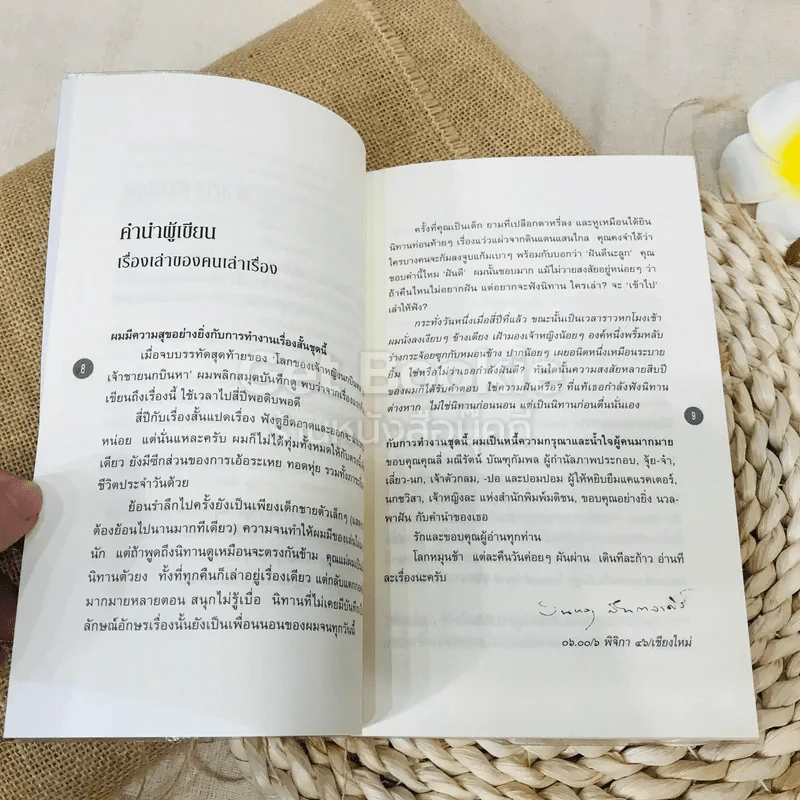 คำนำผู้เขียน
เรื่องเล่าของคนเล่าเรื่อง
ผมมีความสุขอย่างยิ่งกับการทำงานเรื่องสั้นชุดนี้
เมื่อจบบรรทัดสุดท้ายของ 'โลกของเจ้าหญิงนกบินเหนือ
เจ้าชายนกบินหา' ผมพลิกสมุดบันทึกดู พบว่าจากเรื่องแรก
เขียนถึงเรื่องนี้ ใช้เวลาไปสี่ปีพอดิบพอดี
สี่ปีกับเรื่องสั้นแปดเรื่อง ฟังดูอืดอาดและออกจะ
หน่อย แต่นั่นแหละครับ ผมก็ไม่ได้ทุ่มทั้งหมดให้กับ
เดียว ยังมีซีกส่วนของการเอ้อระเหย ทอดหุ่ย รวมทั้งการ
ชีวิตประจำวันด้วย
8
ย้อนรำลึกไปครั้งยังเป็นเพียงเด็กชายตัวเล็กๆ
ต้องย้อนไปนานมากทีเดียว) ความจนทำให้ผมมีของเล่นไม่
นัก แต่ถ้าพูดถึงนิทานดูเหมือนจะตรงกันข้าม คุณแม่ผมเป็น
นิทานตัวยง ทั้งที่ทุกคืนก็เล่าอยู่เรื่องเดียว แต่กลับแตก
มากมายหลายตอน สนุกไม่รู้เบื่อ นิทานที่ไม่เคยมีบันทึก
ลักษณ์อักษรเรื่องนั้นยังเป็นเพื่อนนอนของผมจนทุกวันนี้
ครั้งที่คุณเป็นเด็ก ยามที่เปลือกตาหรี่ลง และหูเหมือนได้ยิน
นิทานท่อนท้ายๆ เรื่องแว่วแผ่วจากดินแดนแสนไกล คุณคงจำได้ว่า
ใครบางคนจะก้มลงจูบแก้มเบาๆ พร้อมกับบอกว่า 'ฝันดีนะลูก' คุณ
ชอบคำนี้ไหม 'ฝันดี' ผมนั้นชอบมาก แม้ไม่วายสงสัยอยู่หน่อยๆ ว่า
ถ้าคืนไหนไม่อยากฝัน แต่อยากจะฟังนิทาน ใครเล่า? จะ 'เข้าไป'
เล่าให้ฟัง?
กระทั่งวันหนึ่งเมื่อสี่ปีที่แล้ว ขณะนั้นเป็นเวลาราวหกโมงเช้า
ผมนั่งลงเงียบๆ ข้างเตียง เฝ้ามองเจ้าหญิงน้อยๆ องค์หนึ่งพริ้มหลับ
ร่างกระจ้อยซุกกับหมอนข้าง ปากน้อยๆ เผยอนิดหนึ่งเหมือนระบาย
ยิ้ม ใช่หรือไม่ว่าเธอกำลังฝันดี? ทันใดนั้นความสงสัยหลายสิบปี
ของผมก็ได้รับคำตอบ ใช่ความฝันหรือ? ที่แท้เธอกำลังฟังนิทาน
ต่างหาก ไม่ใช่นิทานก่อนนอน แต่เป็นนิทานก่อนตื่นนั่นเอง
9
กับการทำงานชุดนี้ ผมเป็นหนี้ความกรุณาและน้ำใจผู้คนมากมาย
ขอบคุณคุณลี่ มณีรัตน์ บัณฑุกัมพล ผู้กำนัลภาพประกอบ, จุ้ย-จ๋า,
เลี่ยว-นก, เจ้าตัวกลม, -ปอ และปอมปอม ผู้ให้หยิบยืมแคแรคเตอร์,
นกชวิสา, เจ้าหญิงละ แห่งสำนักพิมพ์มติชน, ขอบคุณอย่างยิ่ง นวล-
พาฝัน กับคำนำของเธอ
รักและขอบคุณผู้อ่านทุกท่าน
โลกหมุนช้า แต่ละคืนวันค่อยๆ ผันผ่าน เดินทีละก้าว อ่านที
ละเรื่องนะครับ
๐๖.๐๐/๖ พิจิกา ๔๖/เชียงใหม่